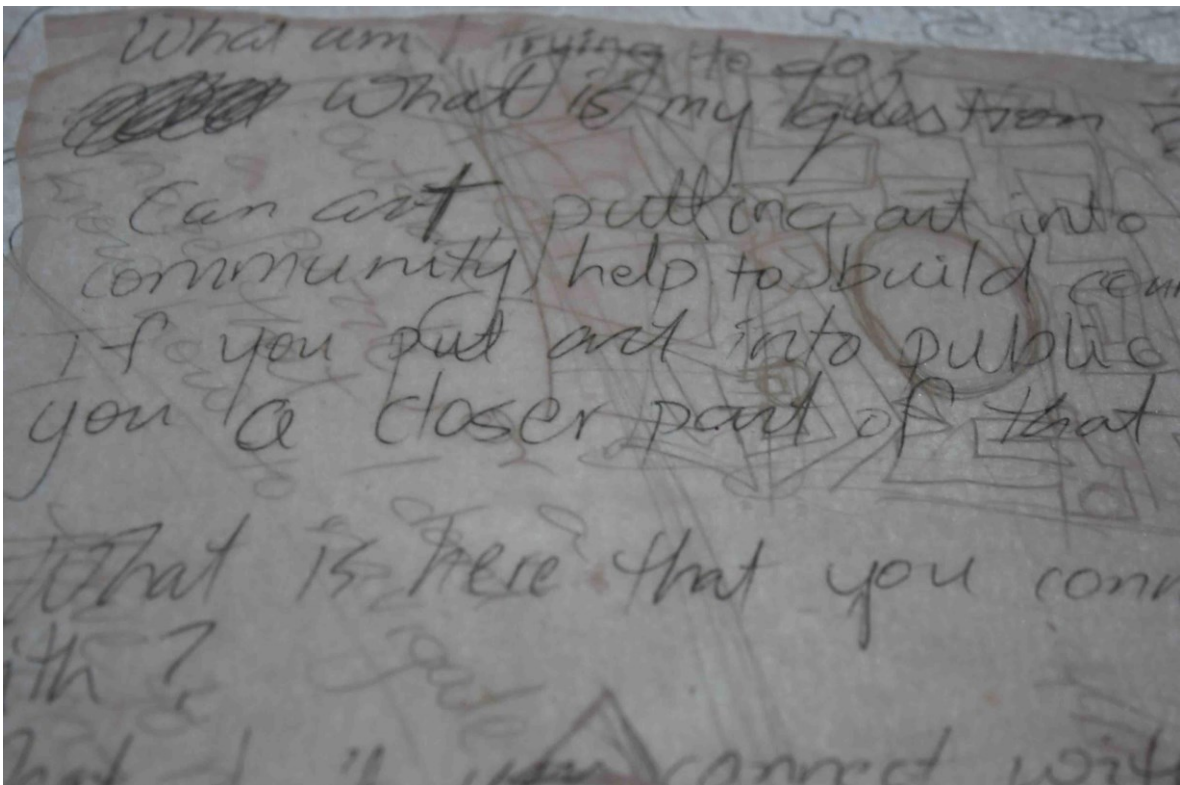 What am I trying to do?
What is my question ?
Can art putting art into
community, help to build com
If you put art into public
you a closer part of that
What is here that you conn
ith?
hat I connect with